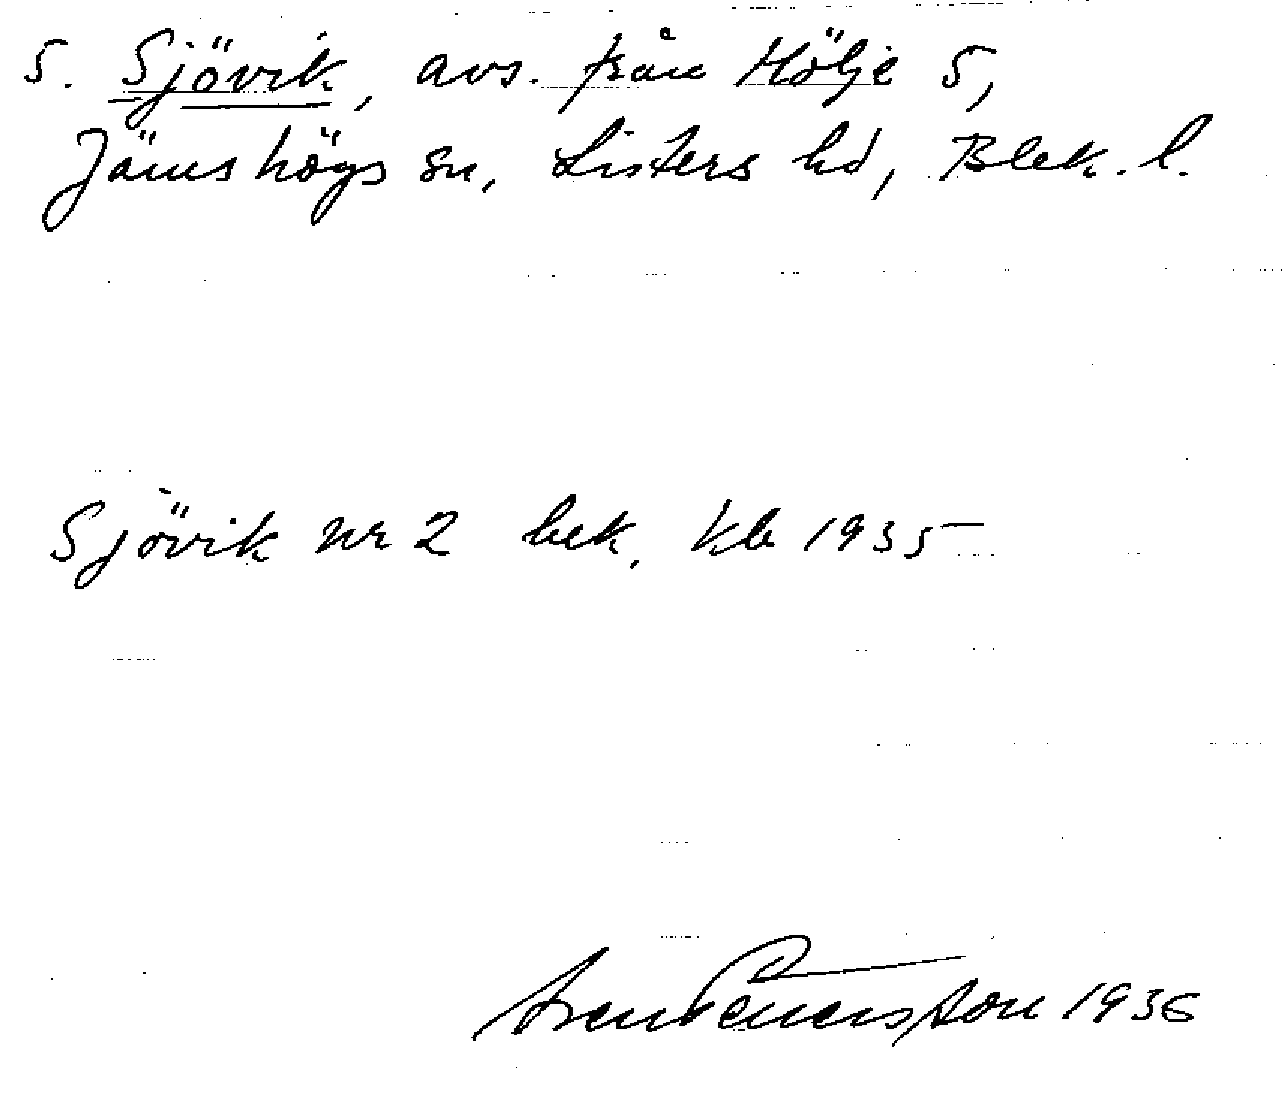 5. Sjövik, avs. från Hölje 5,
Jämshögs sn, Listers hd, Blek. l.
Sjövik nr 2 bek. Kb 1935
1936